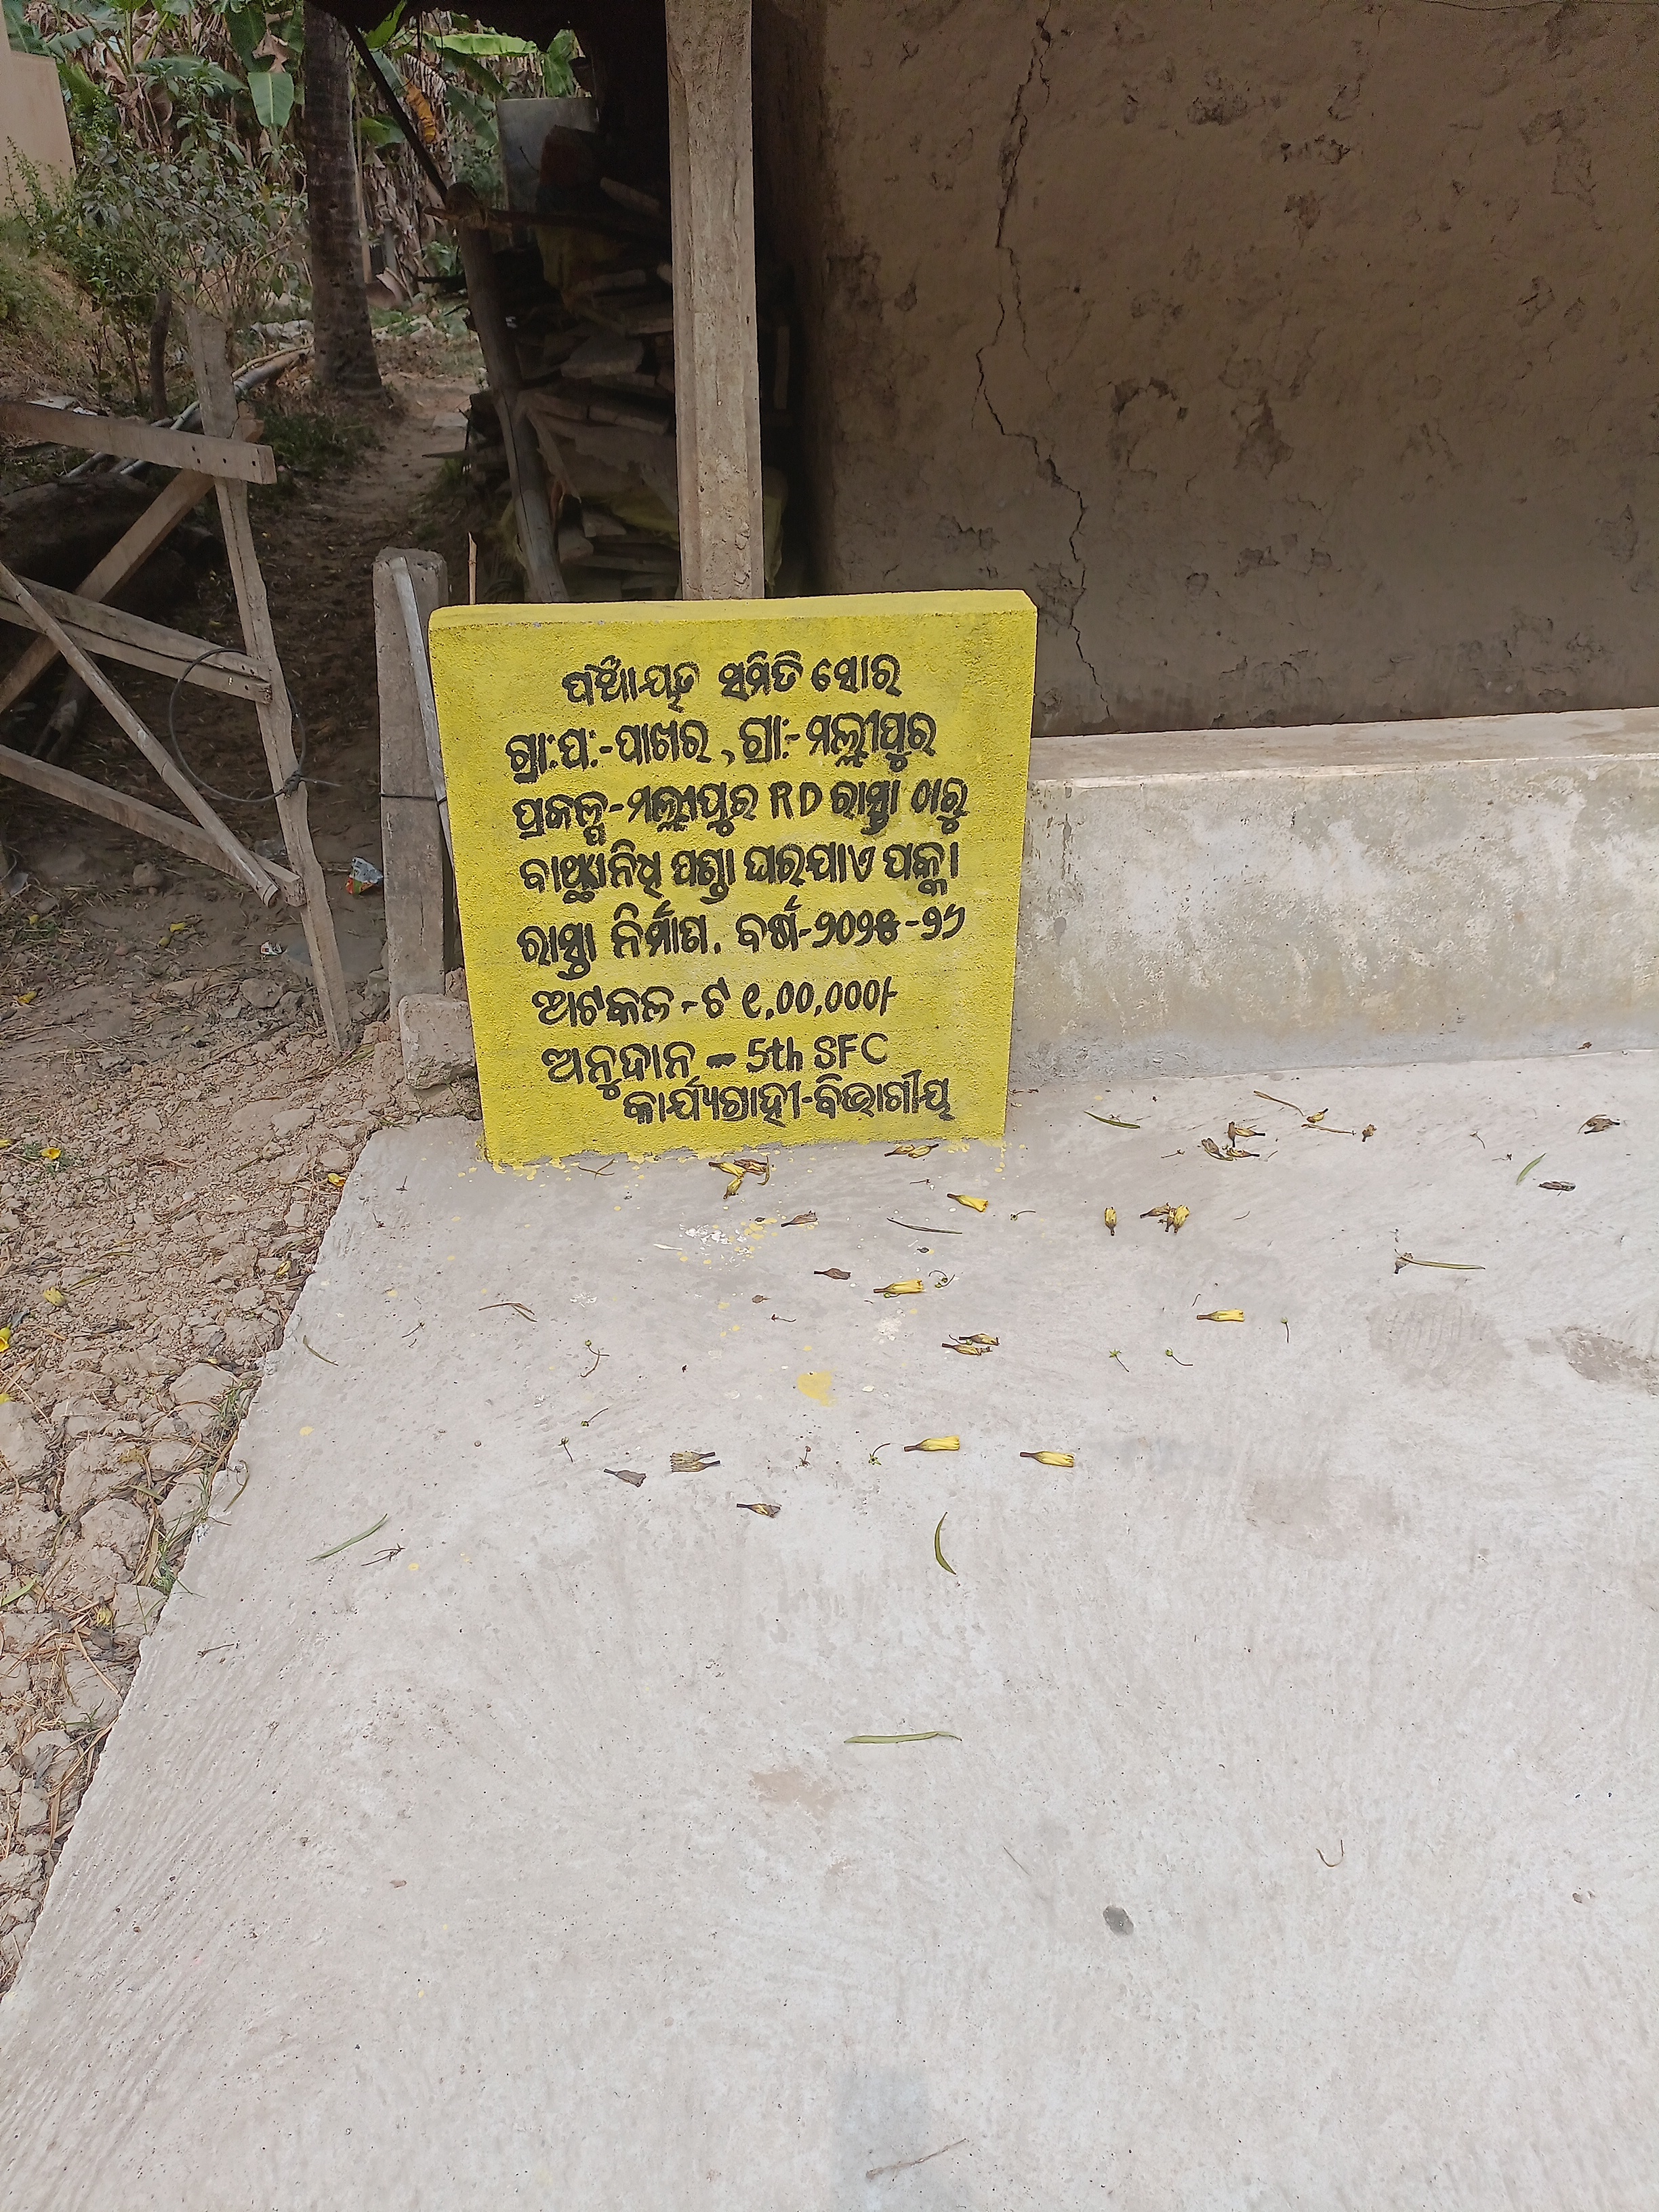 ପଞ୍ଚାୟତ ସମିତି ସୋର
ଗ୍ରା:ପ:-ପାଖର, ଗ୍ରା:- ମଲ୍ଲୀପୁର
ପ୍ରକଳ୍ପ-ମଲ୍ଲୀପୁର RD ରାସ୍ତା ଠାରୁ
ନିଧି ପଣ୍ଡା ଘରଯାଏ ପକ୍କା
ରାସ୍ତା ନିର୍ମାଣ. ବର୍ଷ-୨୦୨୫-୨୬
ଅଟକଳ - ଟ ୧,୦୦,୦୦୦/-
ଅନୁଦାନ - 5th SFC
କାର୍ଯ୍ୟଗ୍ରାହୀ-ବିଭାଗୀୟ